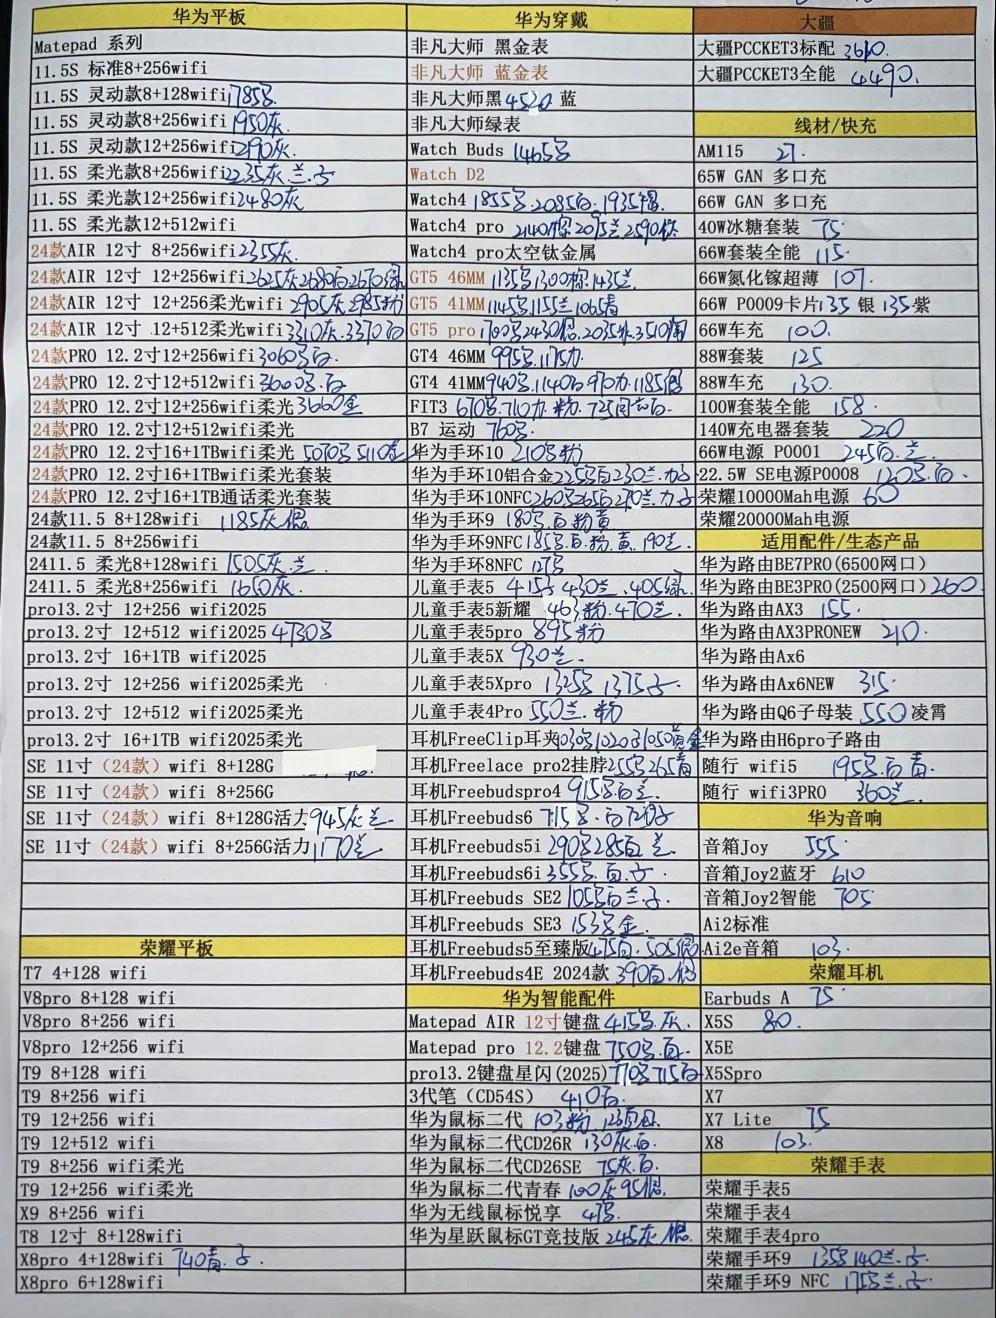 华为平板
Matepad 系列
11.5S 标准8+256wifi
11.5S 灵动款8+128wifi 1785
11.5S 灵动款8+256wifi 1950灰
11.5S 灵动款12+256wifi 2190灰
11.5S 柔光款8+256wifi 2235灰
11.5S 柔光款12+256wifi 2480灰
11.5S 柔光款12+512wifi
24款AIR 12寸 8+256wifi 2355灰
24款AIR 12寸 12+256wifi 2625灰2680白2670绿
24款AIR 12寸 12+256柔光wifi 2905灰2985粉
24款AIR 12寸 12+512柔光wifi 3310灰.3370白
24款PRO 12.2寸12+256wifi 3060
24款PRO 12.2寸12+512wifi 3600
24款PRO 12.2寸12+256wifi柔光 3660金
24款PRO 12.2寸12+512wifi柔光
24款PRO 12.2寸16+1TBwifi柔光 5070 5110
24款PRO 12.2寸16+1TBwifi柔光套装
24款PRO 12.2寸16+1TB通话柔光套装
24款11.5 8+128wifi 1185灰
24款11.5 8+256wifi
2411.5 柔光8+128wifi 1505灰.兰
2411.5 柔光8+256wifi 1650灰
pro13.2寸 12+256 wifi2025
pro13.2寸 12+512 wifi2025 4730
pro13.2寸 16+1TB wifi2025
pro13.2寸 12+256 wifi2025柔光
pro13.2寸 12+512 wifi2025柔光
pro13.2寸 16+1TB wifi2025柔光
SE 11寸（24款）wifi 8+128G
SE 11寸（24款）wifi 8+256G
SE 11寸（24款）wifi 8+128G活力 945灰兰
SE 11寸（24款）wifi 8+256G活力 1170兰
荣耀平板
T7 4+128 wifi
V8pro 8+128 wifi
V8pro 8+256 wifi
V8pro 12+256 wifi
T9 8+128 wifi
T9 8+256 wifi
T9 12+256 wifi
T9 12+512 wifi
T9 8+256 wifi柔光
T9 12+256 wifi柔光
X9 8+256 wifi
T8 12寸 8+128wifi
X8pro 4+128wifi 740青
X8pro 6+128wifi
华为穿戴
非凡大师 黑金表
非凡大师 蓝金表
非凡大师黑 蓝
非凡大师绿表
Watch Buds 1465
Watch D2
Watch4 1855 2085 1935
Watch4 pro 2140棕2095兰2590
Watch4 pro太空钛金属
GT5 46MM 1135 1300棕1435兰
GT5 41MM 1145 1155兰1065青
GT5 pro 1700 2430 2035 3510
GT4 46MM 995 1175
GT4 41MM 940 1140白970 1185
FIT3 670 710 粉 725
B7 运动 760
华为手环10 210 粉
华为手环10铝合金 225 白230兰
华为手环10NFC 260 265白270兰
华为手环9 180 白粉黄
华为手环9NFC 185 白.粉.黄.190兰
华为手环8NFC 127
儿童手表5 415 430兰.405绿
儿童手表5新耀 463粉.470兰
儿童手表5pro 895粉
儿童手表5X 930兰
儿童手表5Xpro 1325 1375
儿童手表4Pro 550兰.粉
耳机FreeClip耳夹 1030 1020 1050
耳机Freelace pro2挂脖 255 265青
耳机Freebudspro4 915 白兰
耳机Freebuds6 715
耳机Freebuds5i 290 285白兰
耳机Freebuds6i 355 白
耳机Freebuds SE2 105 白兰
耳机Freebuds SE3 153 金
耳机Freebuds5至臻版 475白.505
耳机Freebuds4E 2024款 390白
华为智能配件
Matepad AIR 12寸键盘 415 灰
Matepad pro 12.2键盘 750 白
pro13.2键盘星闪(2025) 770 715白
3代笔（CD54S） 410白
华为鼠标二代 103粉
华为鼠标二代CD26R 130灰.白
华为鼠标二代CD26SE 75灰.白
华为鼠标二代青春 100灰95
华为无线鼠标悦享 47
华为星跃鼠标GT竞技版 245灰
大疆
大疆PCCKET3标配 3610
大疆PCCKET3全能 4490
线材/快充
AM115 27
65W GAN 多口充
66W GAN 多口充
40W冰糖套装 75
66W套装全能 115
66W氮化镓超薄 107
66W P0009卡片135 银 135紫
66W车充 100
88W套装 125
88W车充 130
100W套装全能 158
140W充电器套装 220
66W电源 P0001 245白.兰
22.5W SE电源P0008 120 白
荣耀10000Mah电源 60
荣耀20000Mah电源
适用配件/生态产品
华为路由BE7PRO(6500网口)
华为路由BE3PRO(2500网口) 260
华为路由AX3 155
华为路由AX3PRONEW 210
华为路由Ax6
华为路由Ax6NEW 315
华为路由Q6子母装 550 凌霄
华为路由H6pro子路由
随行 wifi5 195 白青
随行 wifi3PRO 360兰
华为音响
音箱Joy 555
音箱Joy2蓝牙 610
音箱Joy2智能 705
Ai2标准
Ai2e音箱 103
荣耀耳机
Earbuds A 75
X5S 80
X5E
X5Spro
X7
X7 Lite 75
X8 103
荣耀手表
荣耀手表5
荣耀手表4
荣耀手表4pro
荣耀手环9 135 140兰
荣耀手环9 NFC 175 兰